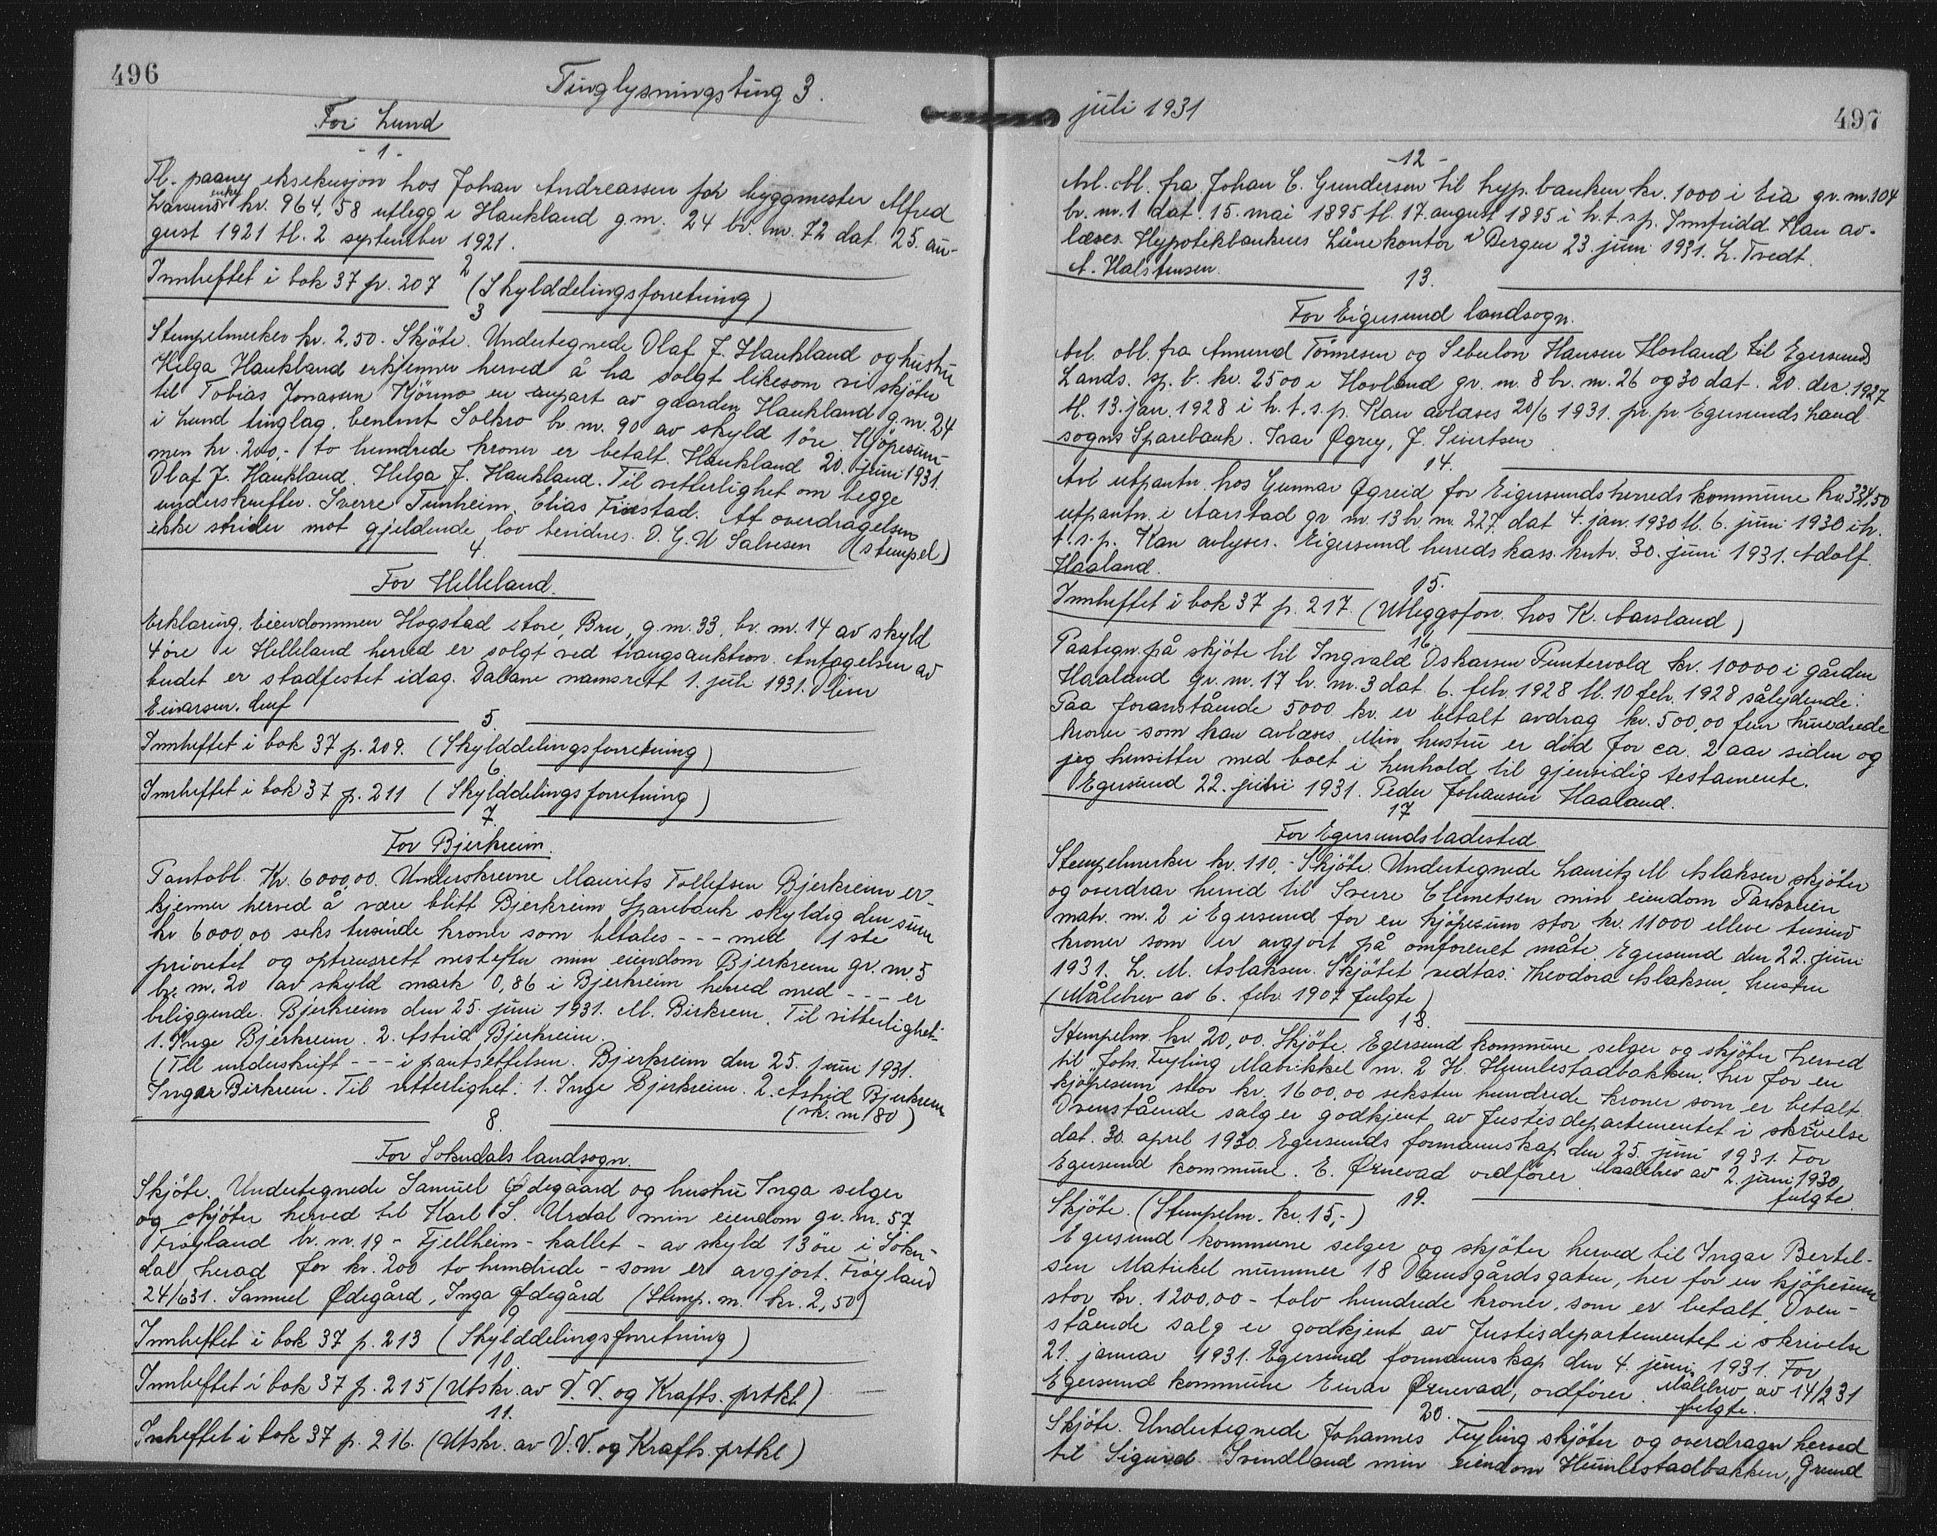 496
Tinglysningsting 3.
For Lund
- 1 -
Tl. paany eksekusjon hos Johan Andreassen for byggmester Alfred
Larsens enke kr. 964,58 utlegg i Haukland g.nr. 24 br. nr. 72 dat. 25. au-
gust 1921 tl. 2 september 1921.
2
Innheftet i bok 37 p. 207 (Skylddelingsforretning)
3
Stempelmerker kr. 2,50. Skjöte. Undertegnede Olaf J. Haukland og hustru
Helga Haukland erkjenner herved å ha solgt likesom vi skjöter
til Tobias Jonassen Kjörmo en anpart av gaarden Haukland g.nr. 24
i Lund tinglag. benevnt Solbro br. nr. 90 av skyld 1 öre. Kjöpesum-
men kr. 200,- to hundrede kroner er betalt. Haukland 20. juni 1931.
Olaf J. Haukland. Helga J. Haukland. Til vitterlighet om begge
underskrifter. Sverre Tunheim, Elias Fixestad. At overdragelsen
ikke strider mot gjeldende lov bevidnes. O. G. W Salvesen (stempel)
4.
For Helleland.
Erklæring. Eiendommen Hogstad store, Bru, g.nr. 33, br. nr. 14 av skyld
4 öre i Helleland herred er solgt ved tvangsauktion. Antagelsen av
budet er stadfestet idag. Dalane namsrett 1. juli 1931. Olein
Einarsen. dmf
5
Innheftet i bok 37 p. 209. (Skylddelingsforretning)
6.
Innheftet i bok 37 p. 211 (Skylddelingsforretning)
7.
For Bjerkreim.
Pantobl. Kr. 6000,00. Underskrevne Maurits Tollefsen Bjerkreim er-
kjenner herved å være blitt Bjerkreim Sparebank skyldig den sum
kr 6000,00 seks tusinde kroner som betales - - - med 1ste
prioritet og optrinsrett nestefter min eiendom Bjerkreim gr. nr. 5
br. nr. 20 av skyld mark 0,86 i Bjerkreim herred med - - - er
beliggende. Bjerkreim den 25. juni 1931. M. Birkrem. Til vitterlighet:
1. Inge Bjerkreim. 2. Astrid Bjerkreim.
(Til underskrift - - - i pantsettelsen. Bjerkreim den 25. juni 1931.
Ingar Birkrem. Til vitterlighet: 1. Inge Bjerkreim. 2. Astrid Bjerkreim
(rk. nr. 180)
8.
For Sokndals landsogn.
Skjöte. Undertegnede Samuel Ødegaard og hustru Inga selger
og skjöter herved til Karl S. Urdal min eiendom gr. nr. 57
Fröyland br. nr. 19 - Fjellheim - kallet - av skyld 13 öre i Sokn-
dal herad for kr. 200 to hundrede - som er avgjort. Fröyland
24/6 31. Samuel Ødegård, Inga Ødegård (Stemp. m. kr. 2,50)
9
Innheftet i bok 37 p. 213 (Skylddelingsforretning)
10.
Innheftet i bok 37 p. 215 (Utskr. av V. V. og Krafts. prtkl.)
11.
Inheftet i bok 37 p. 216. (Utskr. av V. V. og Krafts. prtkl)
juli 1931
497
- 12 -
Avl. obl. fra Johan C. Gundersen til hyp. banken kr. 1000 i Eia gr. nr. 104
br. nr. 1 dat. 15. mai 1895 tl. 17. august 1895 i h. t. s. p. Innfridd Kan av-
læses. Hypotekbankens Lånekontor i Bergen 23. juni 1931. L. Tvedt.
A. Halstensen.
13.
For Eigersund landsogn.
Avl. obl. fra Amund Tönnesen og Sebulon Hansen Hovland til Egersunds
Lands. sp. b. kr. 2500 i Hovland gr. nr. 8 br. nr. 26 og 30 dat. 20. des. 1927
tl. 13. jan. 1928 i h. t. s. p. Kan avlæses 20/6 1931. pr. pr Egersunds Land-
sogns Sparebank. Ivar Øgrey, J. Sivertsen.
14.
Avl utpantn. hos Gunnar Øgreid for Eigersunds herredskommune kr. 334,50
utpantn. i Aarstad gr. nr. 13 br. nr. 227 dat 4. jan. 1930 tl. 6. juni 1930 i h.
t. s. p. Kan avlyses. Eigersund herreds kass. kntr. 30. juni 1931. Adolf
Haaland.
15.
Innheftet i bok 37 p. 217. (Utleggsforr. hos K. Aarsland)
16
Paategn. på skjöte til Ingvald Oskarsen Puntervold kr. 10000 i gården
Haaland gr. nr. 17 br. nr. 3 dat. 6. febr. 1928 tl. 10 febr. 1928 sålydende:
Paa foranstående 5000 kr. er betalt avdrag kr. 500,00 fem hundrede
kroner som kan avlæses. Min hustru er död for ca. 2 aar siden og
jeg hensitter med boet i henhold til gjensidig testamente.
Egersund 22. juni 1931. Peder Johansen Haaland.
17
For Egersunds ladested
Stempelmerker kr. 110,- Skjöte. Undertegnede Lauritz M Aslaksen skjöter
og overdrar herved til Sverre Clemetsen min eiendom Parkveien
matr. nr. 2 i Egersund for en kjöpesum stor kr. 11000 elleve tusind
kroner som er avgjort på omforenet måte. Egersund den 22. juni
1931. L. M. Aslaksen. Skjötet vedtas: Theodora Aslaksen, hustru
(Målebrev av 6. febr. 1907 fulgte)
18.
Stempelm. kr 20,00. Skjöte. Egersund kommune selger og skjöter herved
til Johs. Fuyling Matrikkel nr. 2 H. Humlestadbakken, her for en
kjöpesum stor kr. 1600,00 seksten hundrede kroner som er betalt.
Ovenstående salg er godkjent av Justisdepartementet i skrivelse
dat. 30. april 1930. Egersunds formannskap den 25. juni 1931. For
Egersund kommune. E. Ørnevad ordförer. Maalebrev av 2. juni 1930
fulgte.
19.
Skjöte. (Stempelm. kr. 15,-)
Egersund kommune selger og skjöter herved til Ingar Bertel-
sen Matrikel nummer 18 Damsgårdsgaten, her for en kjöpesum
stor kr. 1200,00 - tolv hundrede kroner, som er betalt. Oven-
stående salg er godkjent av Justisdepartementet i skrivelse
21. januar 1931. Egersund formannskap den 4. juni 1931. For
Egersund kommune Einar Ørnevad, ordförer. Målebrev av 14/2 31
fulgte.
20.
Skjöte. Undertegnede Johannes Fuyling skjöter og overdrager herved
til Sigurd Svindland min eiendom Humlestadbakken, Grund